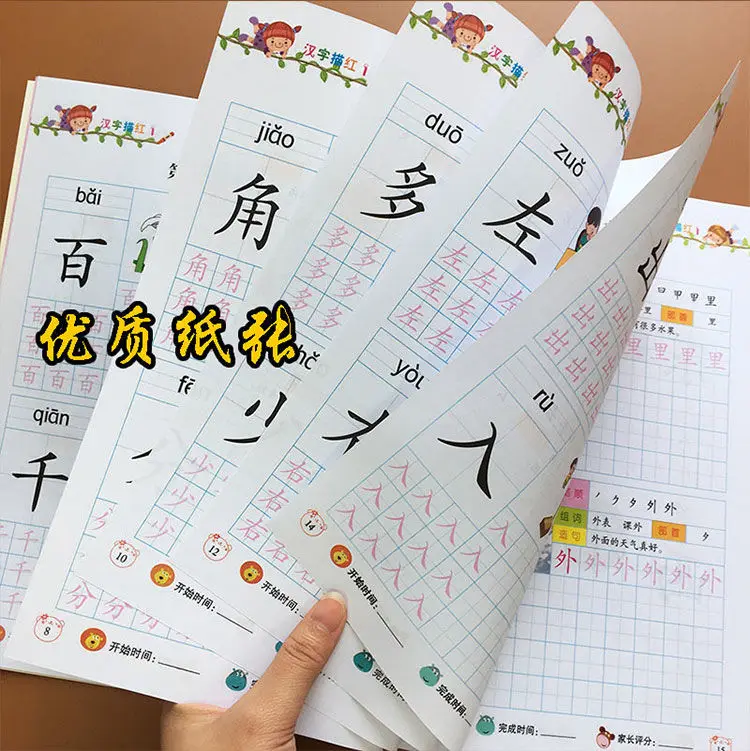 汉字描红1
bǎi
百
百
百
百 百 百
qiān
千
千 千
8
开始时间：
汉字描红1
jiǎo
角
角 角
角
角
fē
分 分
10
开始时间：
汉字描红
duō
多
多 多
多 多
多 多
少
少 少
少
少
12
开始时间：
zuǒ
左
左 左 左
左 左 左
左 左 左
yòu
右
右
右 右
14
开始时间：
完成时间：
出
出 出
出 出 出
出 出 出
rù
入
入 入 入 入
入 入 入 入
入 入 入 入
完成时间：
描红1
日 甲 甲 里
部首 里
有很多水果。
里 里 里 里
笔顺 ノ ク タ 外 外
组词 外表 课外 部首 夕
造句 外面的天气真好。
外 外 外 外 外 外
完成时间：
家长评分：
15
优质纸张